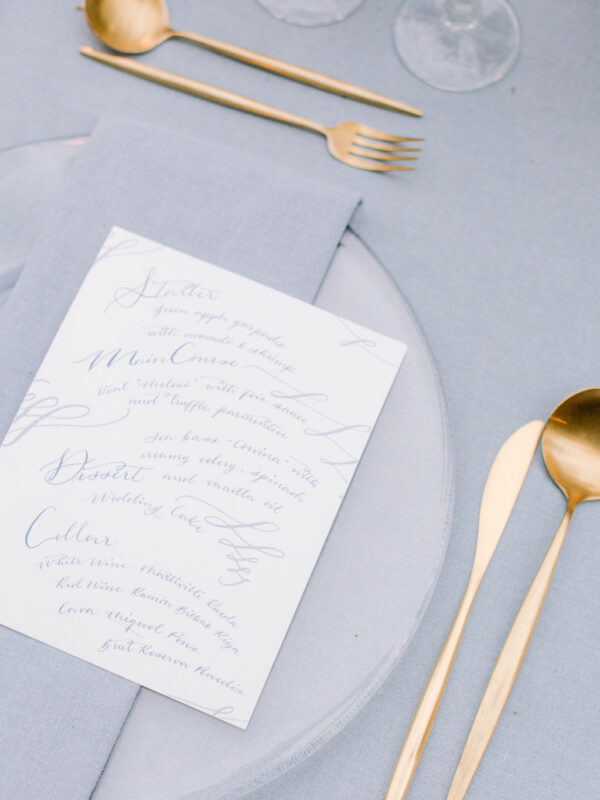 Starter
green apple gazpacho
with avocado & shrimp
Main Course
Veal "Meloso" with foie sauce
and truffle parmentier
Sea bass "Corvina" with
creamy celery, spinach
and vanilla oil
Dessert
Wedding Cake
Cellar
White Wine Mantivilli Rueda
Red Wine Ramón Bilbao Rioja
Cava Miquel Pons
Brut Reserva Penedès